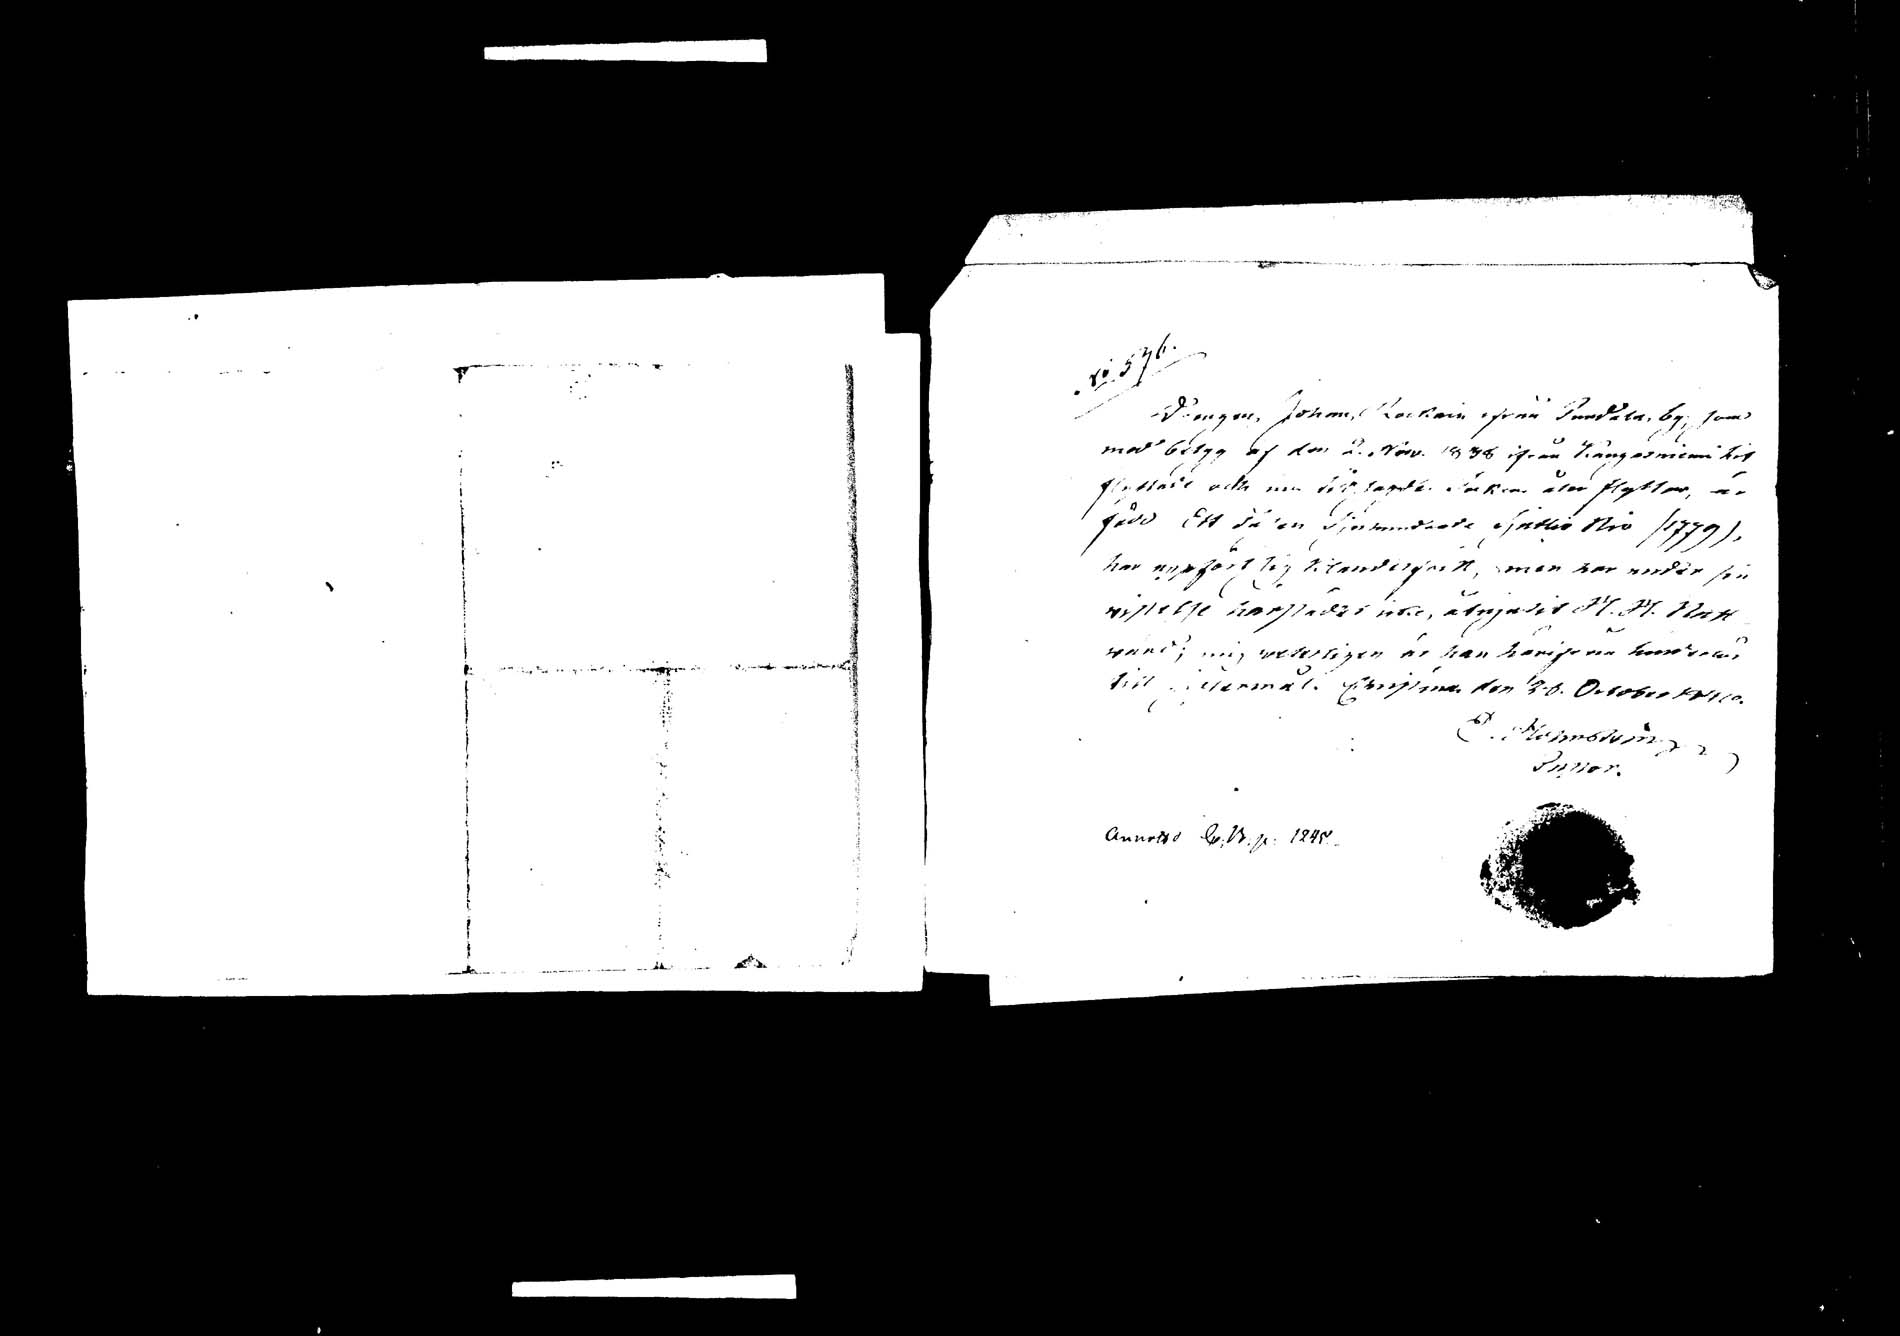 No 576.
Drängen, Johan, Kockain ifrån Pundala by, som
med betyg af den 2. Nov. 1838 ifrån Kangasniemi hit
flyttade och nu till sagde Socken åter flyttar, är
född Ett Tusen Sjuhundrade Sjuttio Nio (1779),
har uppfört sig klanderfritt, men har under sin
vistelse härstädes icke, åtnjutit H. H. Natt
vard; mig veterligen är han härifrån hindrad
till äktenskap. Christina den 26. October
Pastor.
Annoterad p. 1248.